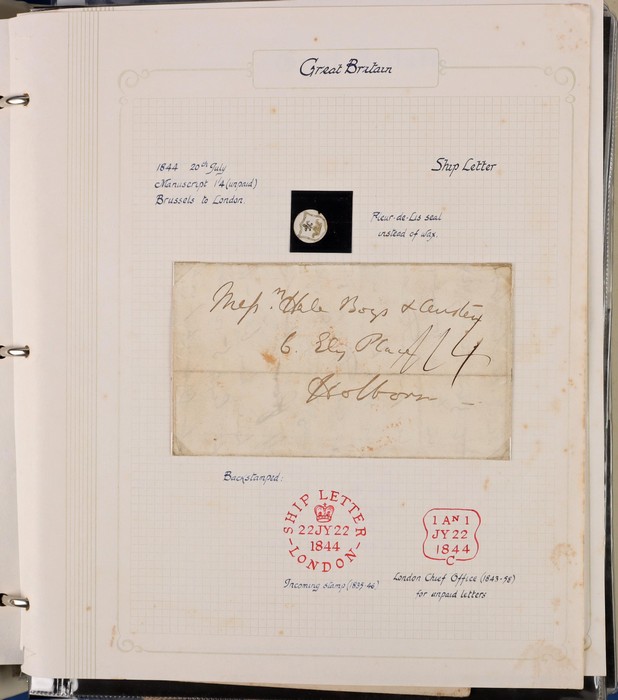 Great Britain
1844 20th July
Manuscript 1/4 (unpaid)
Brussels to London
Ship Letter
Fleur-de-Lis seal
instead of wax.
Messrs Hale Boys & Austen
6. Ely Place
1/4
Holborn
Backstamped:
SHIP LETTER
22 JY 22
1844
LONDON
Incoming stamp (1839-46)
1 AN 1
JY 22
1844
C
London Chief Office (1843-58)
for unpaid letters